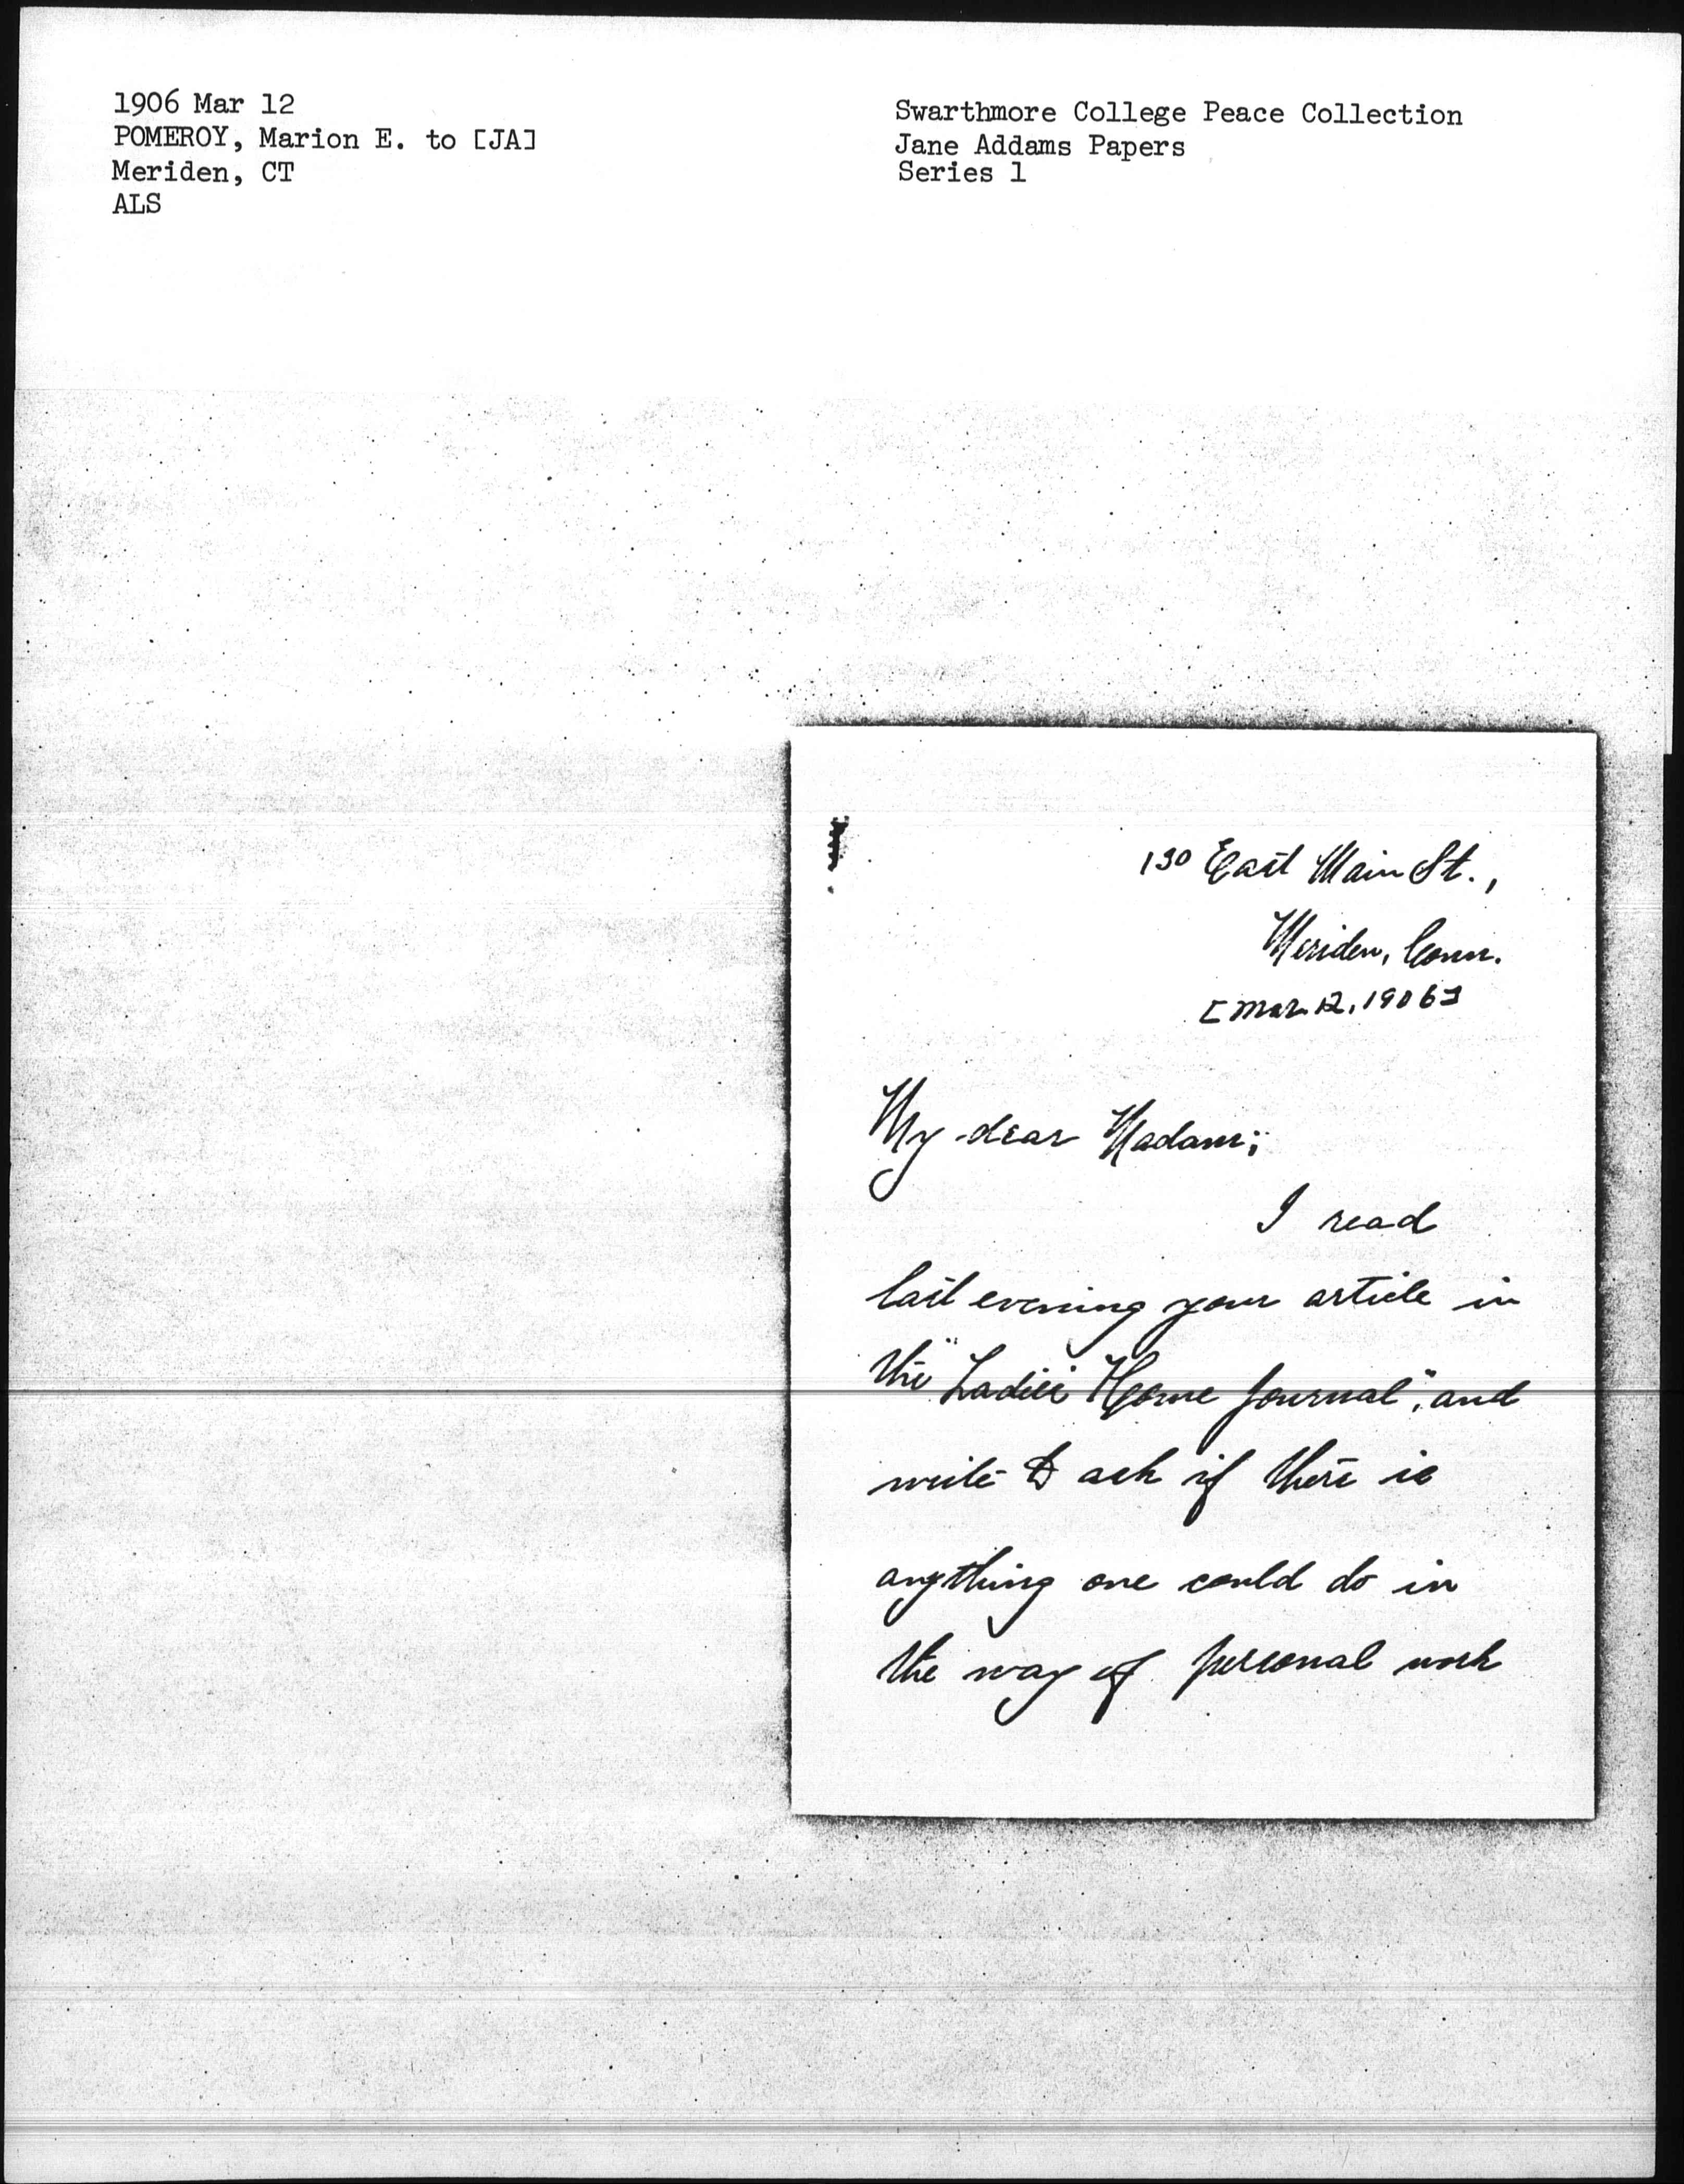 1906 Mar 12
POMEROY, Marion E. to [JA]
Meriden, CT
ALS
Swarthmore College Peace Collection
Jane Addams Papers
Series 1
130 East Main St.,
Meriden, Conn.
[Mar. 12, 1906]
My dear Madam;
I read
last evening your article in
the "Ladies Home Journal", and
write to ask if there is
anything one could do in
the way of personal work